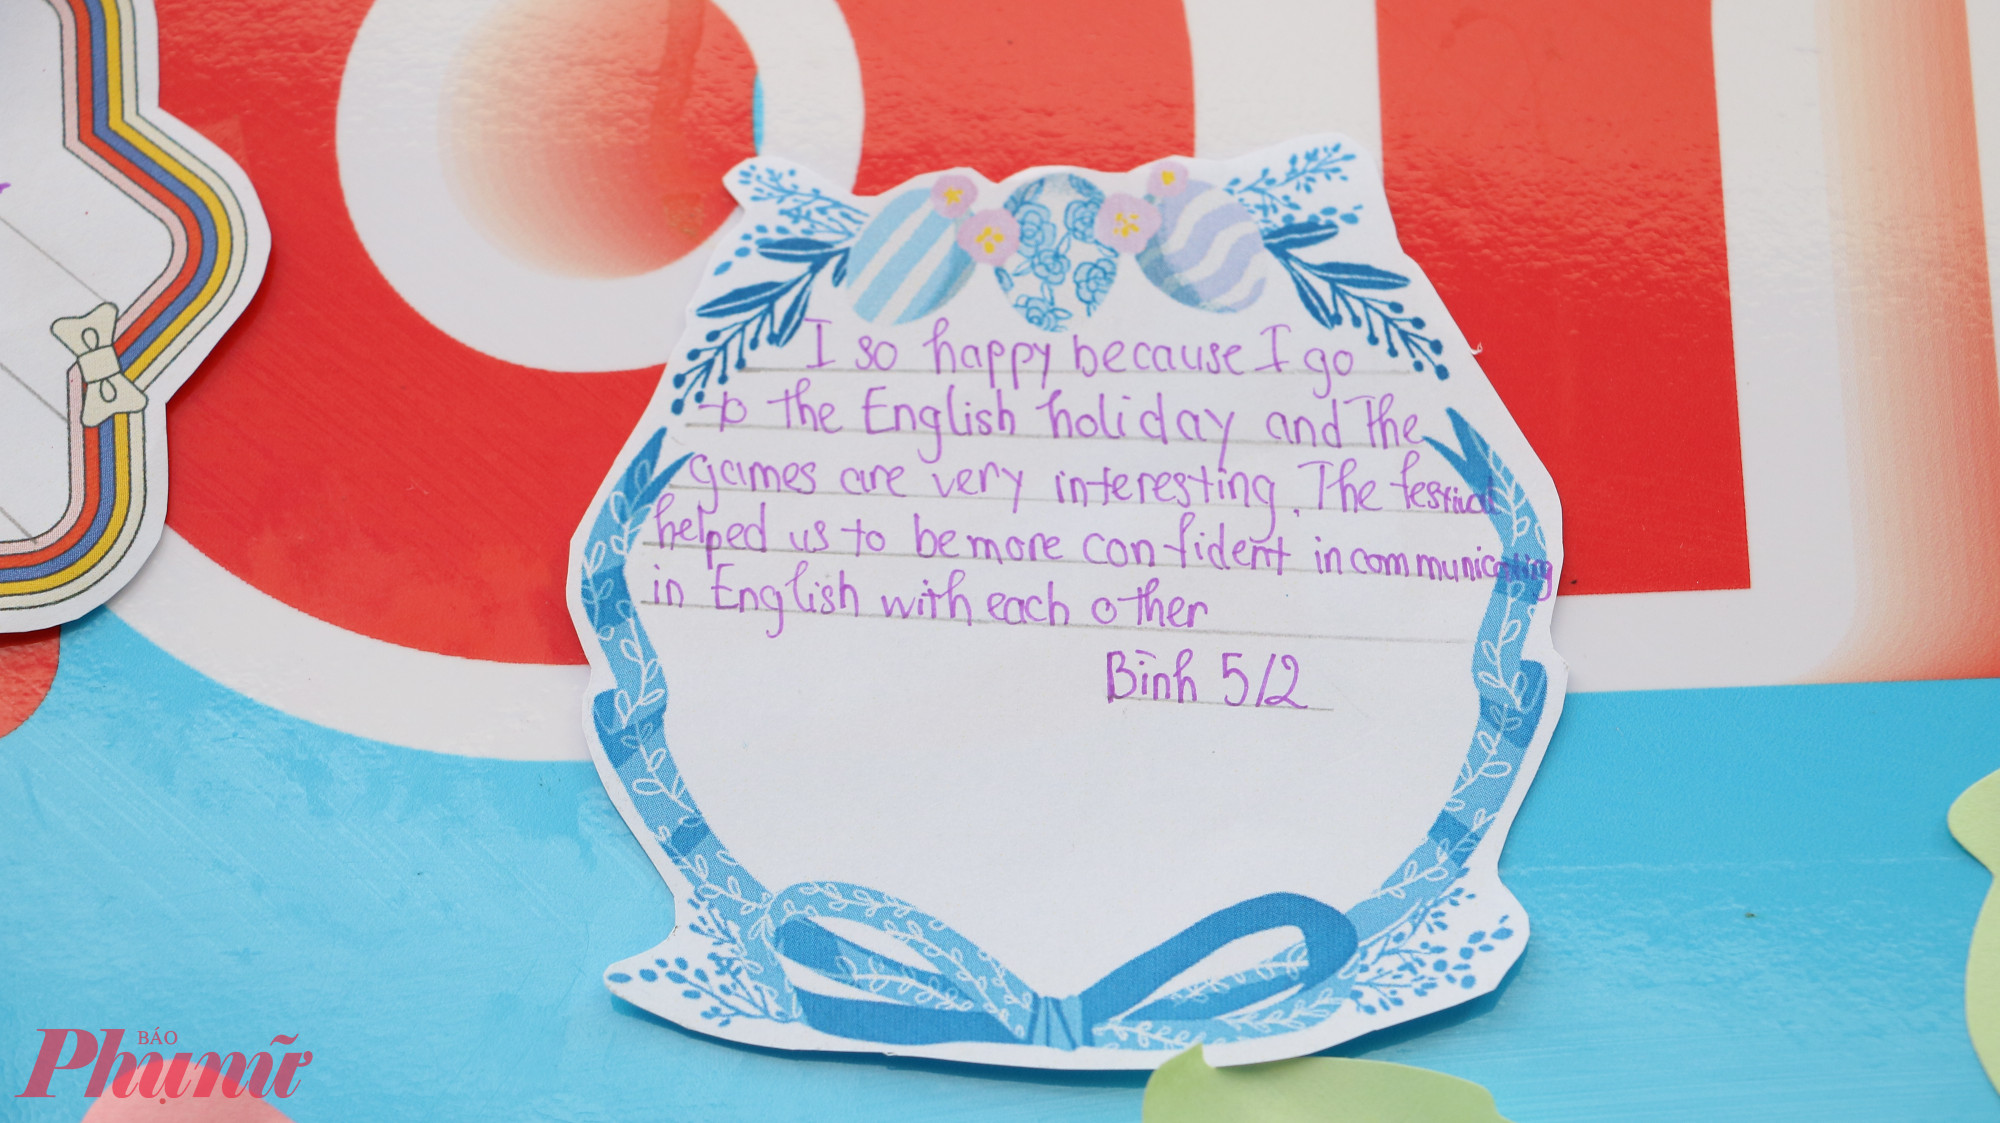 I so happy because I go
to the English holiday and The
games are very interesting. The festival
helped us to be more confident in communicating
in English with each other
Bình 5/2
BÁO
Phụnữ